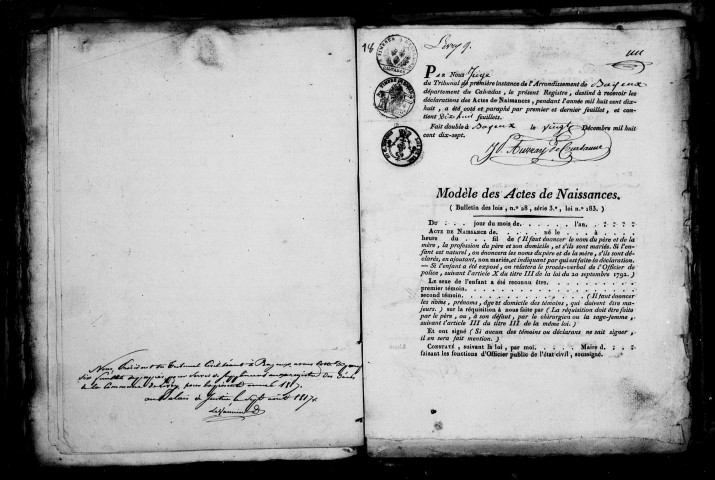 Nous, Président du Tribunal Civil séant à Bayeux, avons
six feuillets
de la Commune de pour la présente année 1817.
au Palais de Justice le Sept août 1817.
18
un
PAR Nous Juge
du Tribunal de première instance de l'Arrondissement de Bayeux
département du Calvados, le présent Registre, destiné à recevoir les
déclarations des Actes de Naissances, pendant l'année mil huit cent dix-
huit, a été coté et paraphé par premier et dernier feuillet, et con-
tient dix huit feuillets.
Fait double à Bayeux le vingt Décembre mil huit
cent dix-sept.
Modèle des Actes de Naissances.
( Bulletin des lois, n.° 28, série 3.e, loi n.° 183. )
DU . . . jour du mois de. . . . . . . l'an. . . . .
ACTE DE NAISSANCE de. . . . . né le . . . . à . . . .
heure du . . . fil de ( Il faut énoncer le nom du père et de la
mère, la profession du père et son domicile, et s'ils sont mariés. Si l'en-
fant est naturel, on énoncera les noms du père et de la mère, s'ils sont dé-
clarés, en ajoutant, non mariés, et indiquant par qui est faite la déclaration.
— Si l'enfant a été exposé, on relatera le procès-verbal de l'Officier de
police, suivant l'article X du titre III de la loi du 20 septembre 1792. )
Le sexe de l'enfant a été reconnu être. . . . . . . .
premier témoin. . . . . . . . . . . . . . . . . .
second témoin. . . . . . . . . . . . . ( Il faut énoncer
les noms, prénoms, âge et domicile des témoins, qui doivent être ma-
jeurs. ) sur la réquisition à nous faite par ( La réquisition doit être faite
par le père, ou, à son défaut, par le chirurgien ou la sage-femme,
suivant l'article III du titre III de la même loi. )
Et ont signé ( Si aucun des témoins ou déclarans ne sait signer,
il en sera fait mention. )
CONSTATÉ, suivant la loi, par moi. . . . . Maire d. . . .
faisant les fonctions d'Officier public de l'état civil, soussigné.